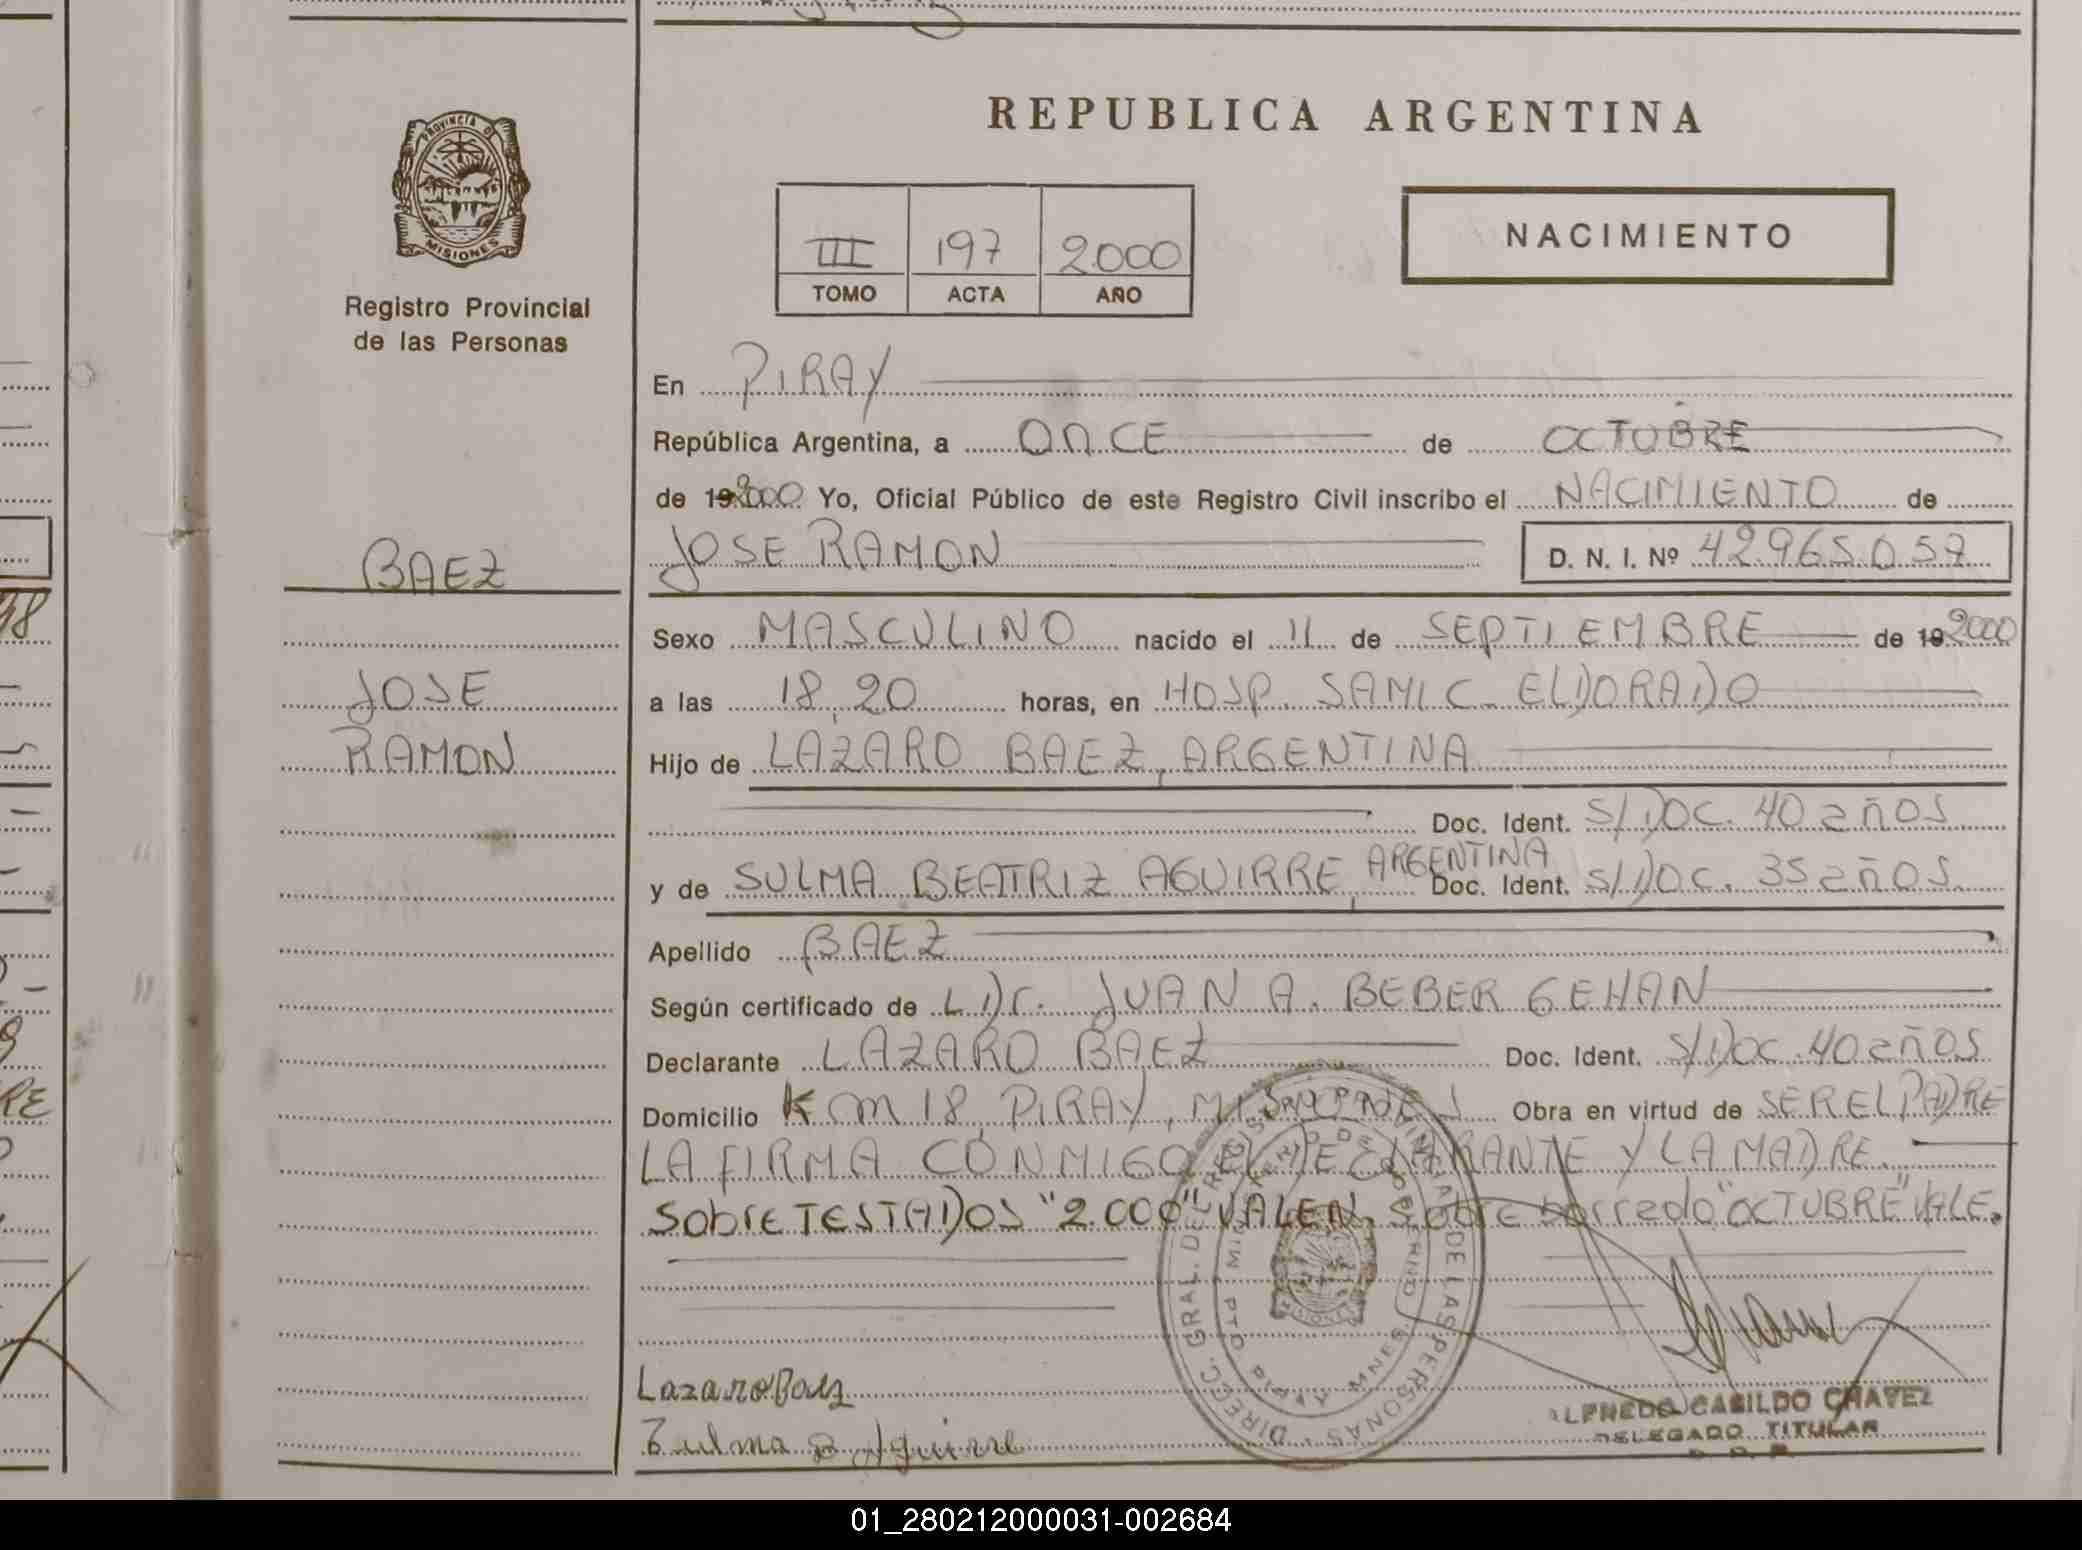 REPUBLICA ARGENTINA
PROVINCIA D
MISIONES
Registro Provincial
de las Personas
III 197 2000
TOMO ACTA AÑO
NACIMIENTO
En PIRAY
República Argentina, a ONCE de OCTUBRE
de 192000 Yo, Oficial Público de este Registro Civil inscribo el NACIMIENTO de
BAEZ
JOSE RAMON D. N. I. Nº 42.965.057
Sexo MASCULINO nacido el 11 de SEPTIEMBRE de 192000
JOSE
RAMON
a las 18,20 horas, en HOSP. SAMIC - ELDORADO
Hijo de LAZARO BAEZ, ARGENTINA
Doc. Ident. S/DOC. 40 años
y de SULMA BEATRIZ AGUIRRE, ARGENTINA Doc. Ident. S/DOC. 35 años
Apellido BAEZ
Según certificado de L Dr. JUAN A. BEBER GEHAN
Declarante LAZARO BAEZ Doc. Ident. S/DOC. 40 años
Domicilio Km 18, PIRAY, MISIONES Obra en virtud de SER EL PADRE
LA FIRMA CONMIGO EL DECLARANTE Y LA MADRE.
SobrE TESTADOS "2.000" VALEN. Sobre borrado "OCTUBRE" VALE.
DIREC. GRAL. DEL REGISTRO PROVINCIAL DE LAS PERSONAS
MINISTERIO DE GOBIERNO
Lazaro Baez
Zulma B Aguirre
ALFREDO CASILDO CHAVEZ
DELEGADO TITULAR
01_280212000031-002684